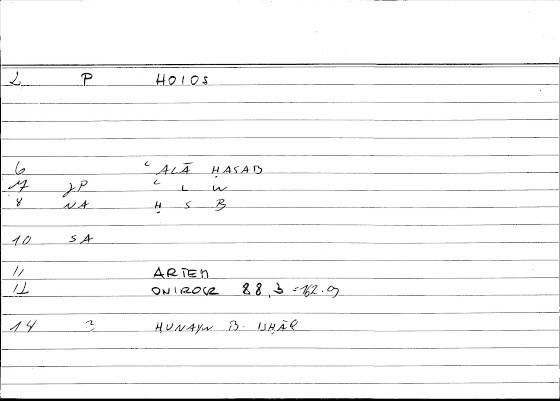 2 P HOIOS
6 ʿALĀ ḤASAB
7 JP ʿ L W
8 NA Ḥ S B
10 SA
11 ARTEM
12 ONIROCR 88,3 = 162.9
14 ? HUNAYN B. ISHĀQ